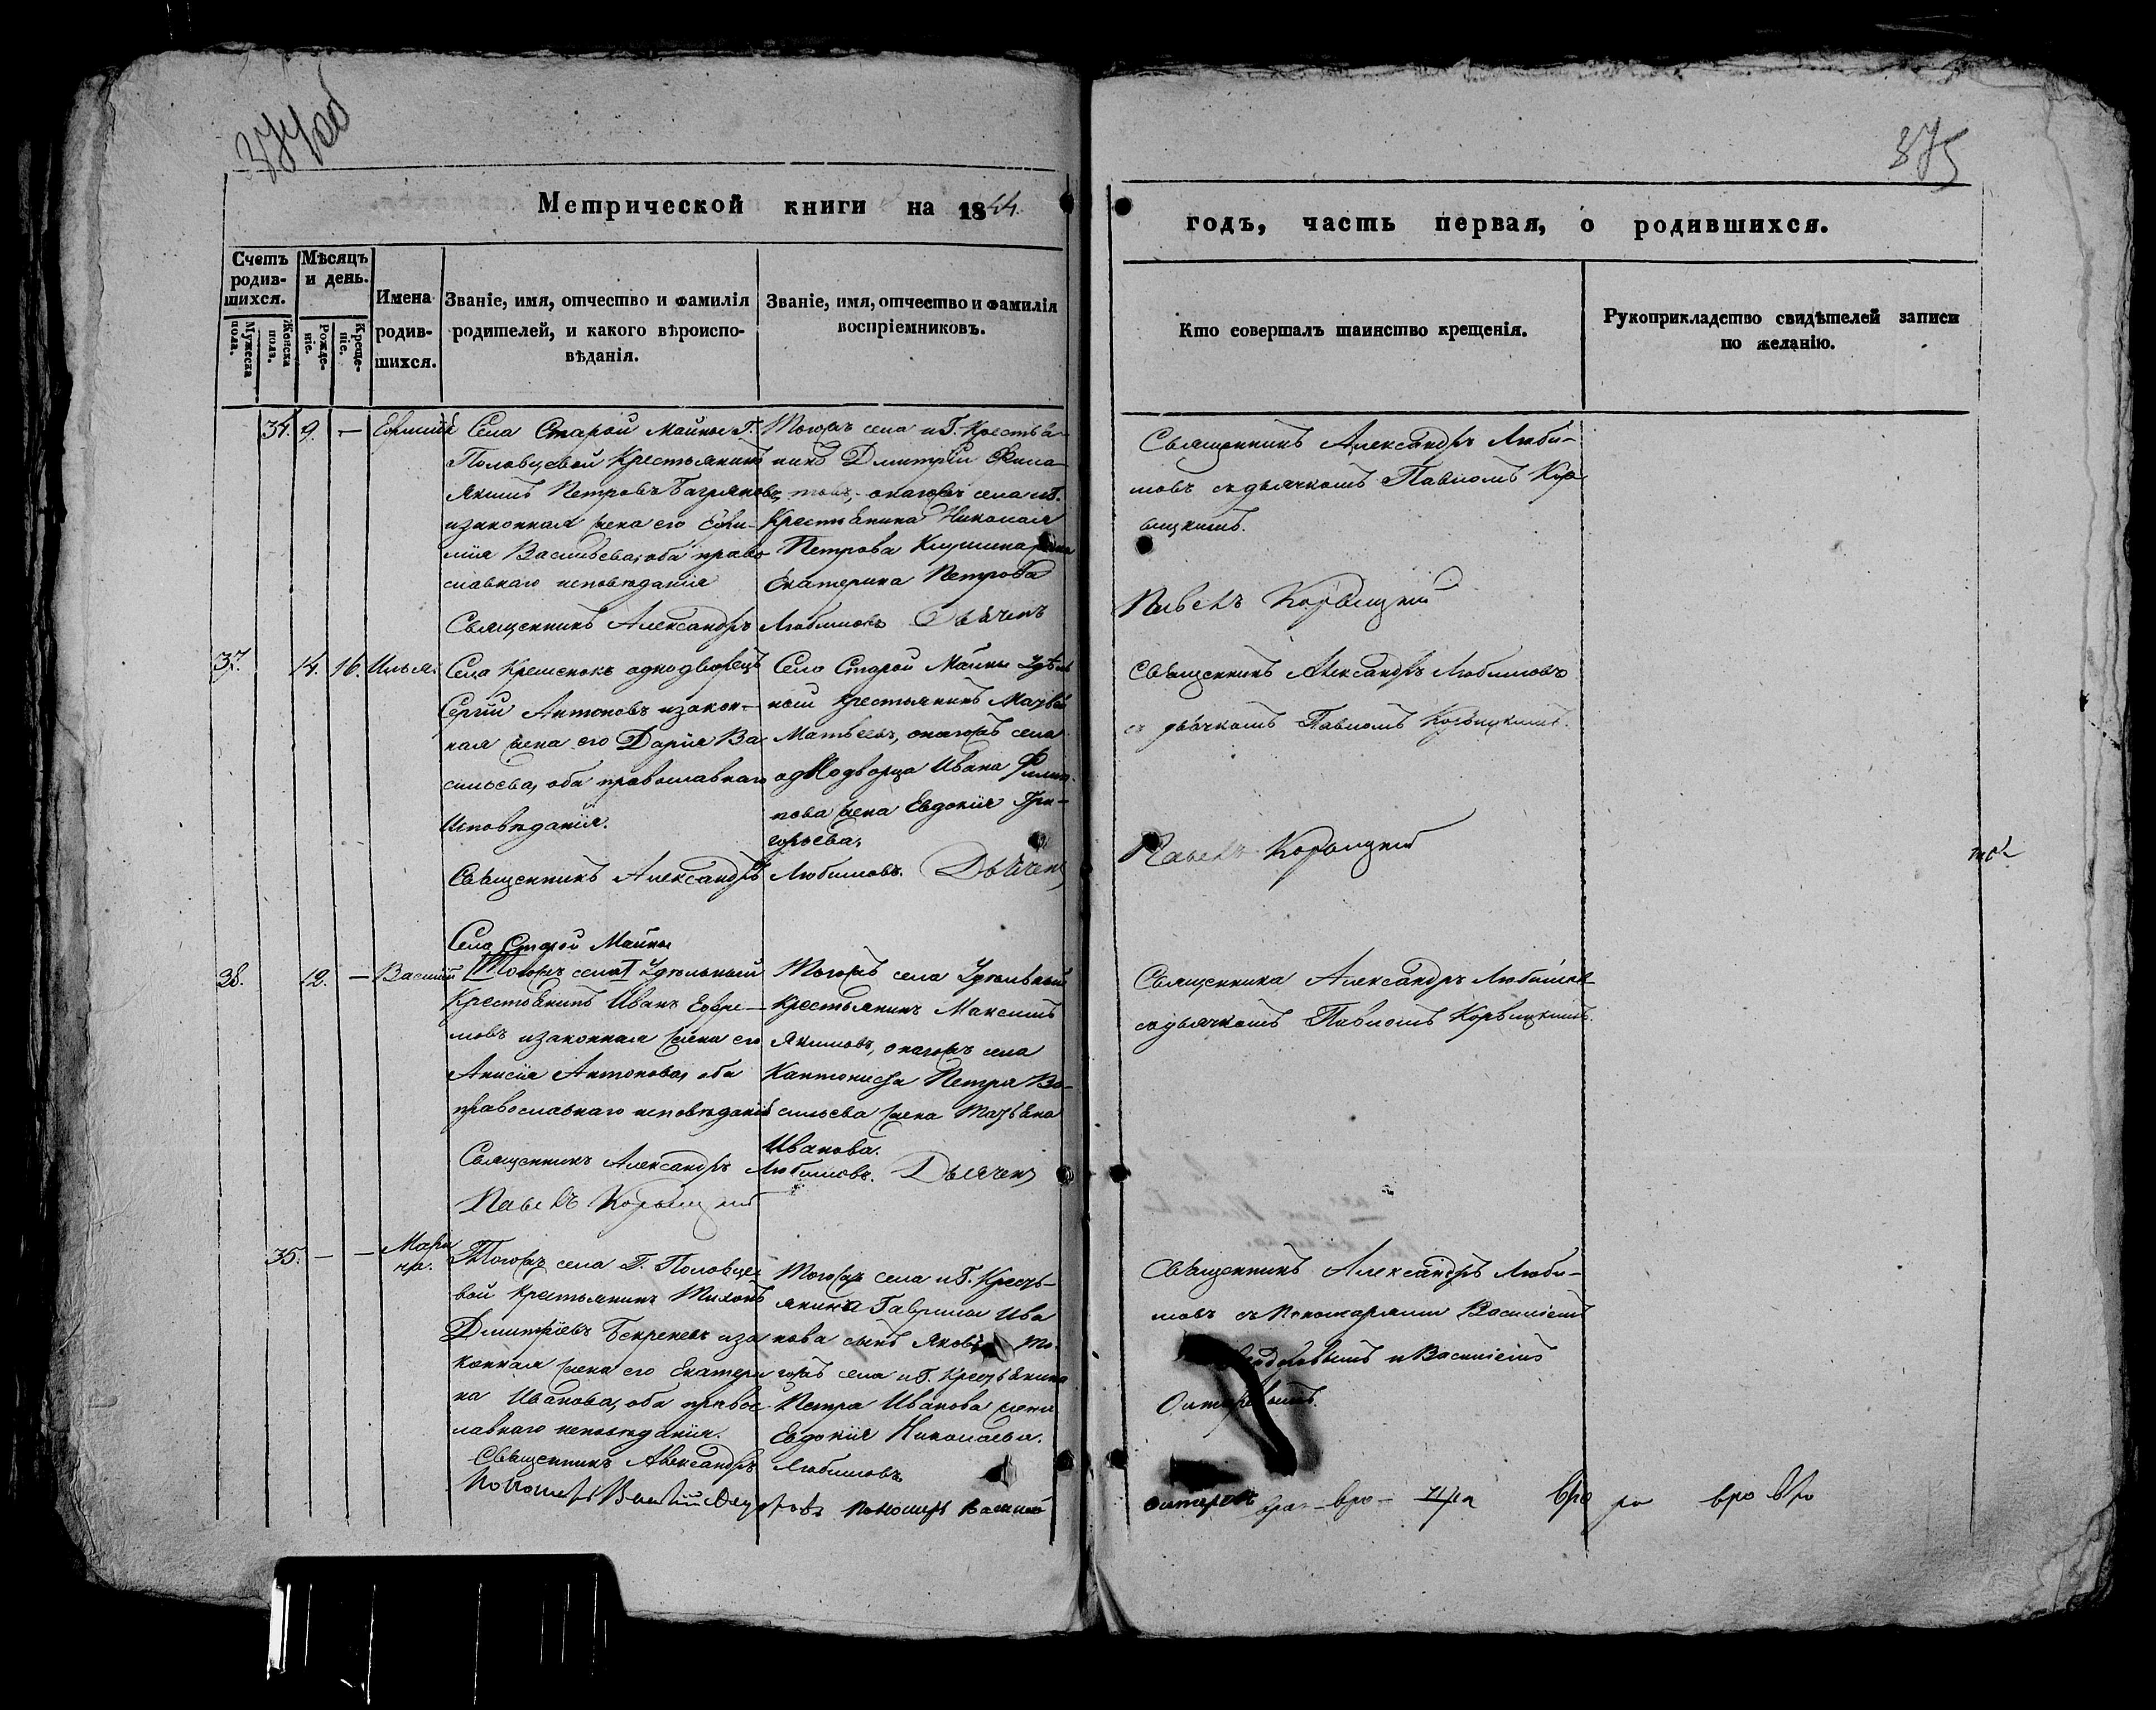 374 об
375
Метрической книги на 1844.
годъ, часть первая, о родившихся.
Счетъ родив-
шихся.
Мужеска пола.
Женска пола.
Мѣсяцъ и день.
Рожде-
ніе.
Креще-
ніе.
Имена
родив-
шихся.
Званіе, имя, отчество и фамилія
родителей, и какого вѣроиспо-
вѣданія.
Званіе, имя, отчество и фамилія
воспріемниковъ.
Кто совершалъ таинство крещенія.
Рукоприкладство свидѣтелей записи
по желанію.
34. 9. —
Села Старой Майны Г.
Половцевой Крестьянинъ
Якимъ Петровъ Багряновъ
изаконная жена его Ефи-
мія Васильева, оба право
славнаго исповѣданія
Священникъ Александръ Любимовъ Дьячекъ
Тогожъ села и Г. Крестья-
нинъ Дмитрій
онагожъ села и Г.
Крестьянина Николая
Петрова
Екатерина Петрова
Священникъ Александръ Люби-
мовъ съ дьячкомъ Павломъ Кор
вицкимъ.
Павелъ Корвицкий
37. 14. 16. Илья.
Села Кременокъ однодворецъ
Сергій Антоновъ изакон-
ная жена его Дарія Ва
сильева, оба православнаго
Исповѣданія.
Священникъ Александръ Любимовъ. Дьячекъ
Село Старой Майны Удѣль
ной крестьянинъ Матвей
Матвеевъ, онагожъ села
однодворца Ивана Филип
пова жена Евдокія Гри-
горьева.
Священникъ Александръ Любимовъ
съ дьячкомъ Павломъ Корвицкимъ.
Павелъ Корвицкий
38. 12. — Василій
Села Старой Майны
Тогожъ села Удѣльный
Крестьянинъ Иванъ Ефре-
мовъ изаконная жена его
Анисія Антонова, оба
православнаго исповѣданія
Священникъ Александръ Любимовъ. Дьячекъ
Павелъ Корвицкий
Тогожъ села Удѣльный
крестьянинъ Максимъ
Якимовъ, онагожъ села
Кантониста Петра Ва-
сильева жена Татьяна
Иванова.
Священника Александръ Любимов
съ дьячкомъ Павломъ Корвицкимъ.
35. — — Мари
на.
Тогожъ села Г. Половце
вой крестьянинъ Тихонъ
Дмитріевъ Бекреневъ иза
конная жена его Екатери
на Иванова, оба правос
лавнаго исповѣданія.
Священникъ Александръ Любимовъ
Пономарь Василій Пономарь Василій
Тогожъ села и Г. Кресть-
янина Гаврилы Ива
нова сынъ Яковъ То
гожъ села и Г. Крестьянина
Петра Иванова жена
Евдокія Николаева.
Священникъ Александръ Люби-
мовъ съ Пономарями Василіемъ
и Василіемъ